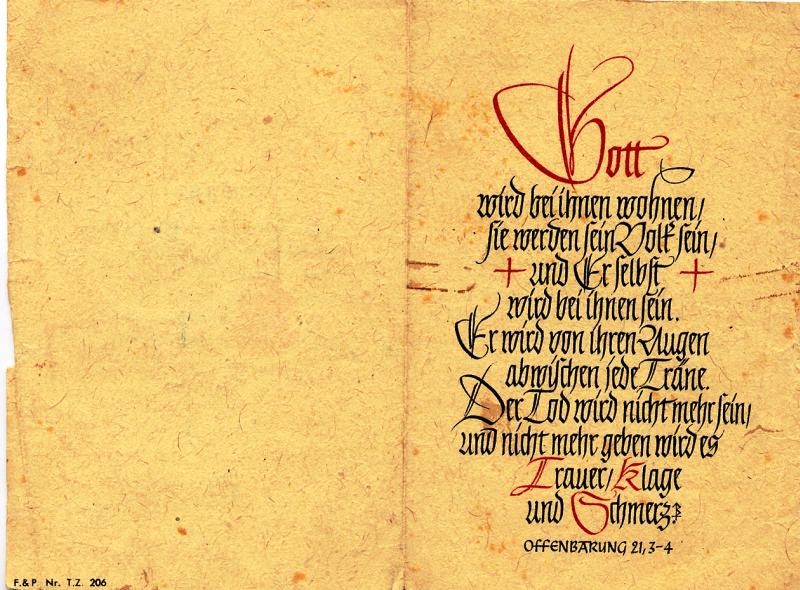 Gott
wird bei ihnen wohnen/
sie werden sein Volk sein/
+ und Er selbst +
wird bei ihnen sein.
Er wird von ihren Augen
abwischen jede Träne.
Der Tod wird nicht mehr sein/
und nicht mehr geben wird es
Trauer/Klage
und Schmerz
OFFENBARUNG 21,3-4
F.&P. Nr. T.Z. 206